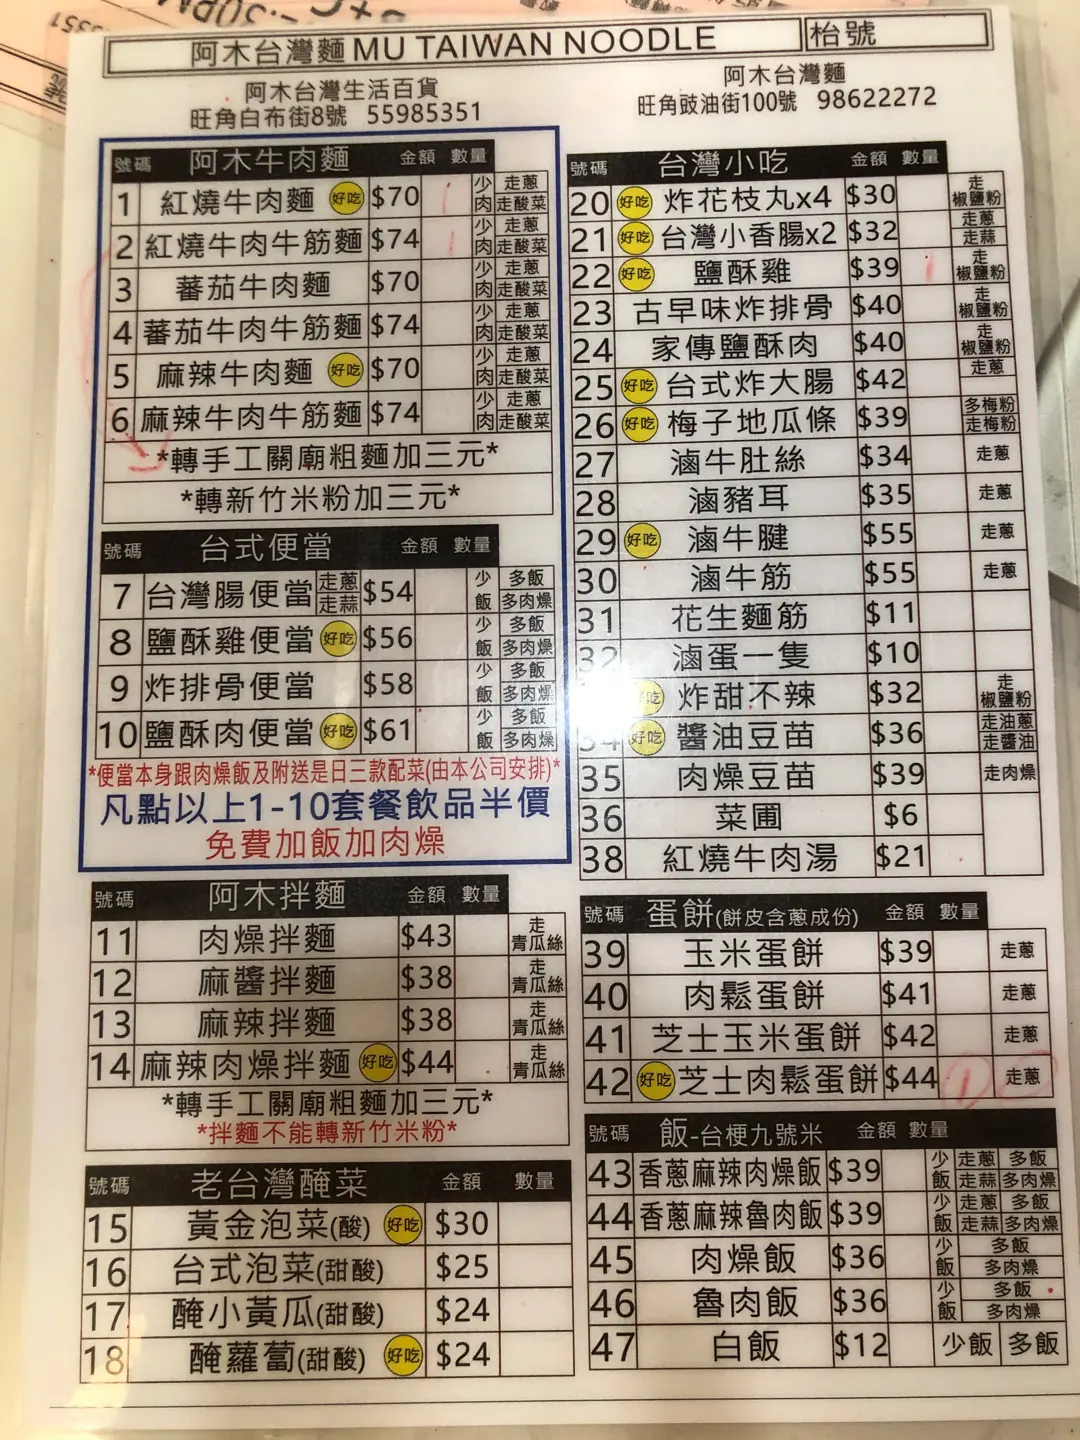 阿木台灣麵 MU TAIWAN NOODLE 枱號
阿木台灣生活百貨
旺角白布街8號 55985351
阿木台灣麵
旺角豉油街100號 98622272
號碼 阿木牛肉麵 金額 數量
1 紅燒牛肉麵 好吃 $70 少肉 走蔥 走酸菜
2 紅燒牛肉牛筋麵 $74 少肉 走蔥 走酸菜
3 蕃茄牛肉麵 $70 少肉 走蔥 走酸菜
4 蕃茄牛肉牛筋麵 $74 少肉 走蔥 走酸菜
5 麻辣牛肉麵 好吃 $70 少肉 走蔥 走酸菜
6 麻辣牛肉牛筋麵 $74 少肉 走蔥 走酸菜
*轉手工關廟粗麵加三元*
*轉新竹米粉加三元*
號碼 台式便當 金額 數量
7 台灣腸便當 走蔥 走蒜 $54 少飯 多飯 多肉燥
8 鹽酥雞便當 好吃 $56 少飯 多飯 多肉燥
9 炸排骨便當 $58 少飯 多飯 多肉燥
10 鹽酥肉便當 好吃 $61 少飯 多飯 多肉燥
*便當本身跟肉燥飯及附送是日三款配菜(由本公司安排)*
凡點以上1-10套餐飲品半價
免費加飯加肉燥
號碼 阿木拌麵 金額 數量
11 肉燥拌麵 $43 走青瓜絲
12 麻醬拌麵 $38 走青瓜絲
13 麻辣拌麵 $38 走青瓜絲
14 麻辣肉燥拌麵 好吃 $44 走青瓜絲
*轉手工關廟粗麵加三元*
*拌麵不能轉新竹米粉*
號碼 老台灣醃菜 金額 數量
15 黃金泡菜(酸) 好吃 $30
16 台式泡菜(甜酸) $25
17 醃小黃瓜(甜酸) $24
18 醃蘿蔔(甜酸) 好吃 $24
號碼 台灣小吃 金額 數量
20 好吃 炸花枝丸x4 $30 走椒鹽粉
21 好吃 台灣小香腸x2 $32 走蔥 走蒜
22 好吃 鹽酥雞 $39 1 走椒鹽粉
23 古早味炸排骨 $40 走椒鹽粉
24 家傳鹽酥肉 $40 走椒鹽粉
25 好吃 台式炸大腸 $42 走蔥
26 好吃 梅子地瓜條 $39 多梅粉 走梅粉
27 滷牛肚絲 $34 走蔥
28 滷豬耳 $35 走蔥
29 好吃 滷牛腱 $55 走蔥
30 滷牛筋 $55 走蔥
31 花生麵筋 $11
32 滷蛋一隻 $10
好吃 炸甜不辣 $32 走椒鹽粉
34 好吃 醬油豆苗 $36 走油蔥 走醬油
35 肉燥豆苗 $39 走肉燥
36 菜圃 $6
38 紅燒牛肉湯 $21
號碼 蛋餅(餅皮含蔥成份) 金額 數量
39 玉米蛋餅 $39 走蔥
40 肉鬆蛋餅 $41 走蔥
41 芝士玉米蛋餅 $42 走蔥
42 好吃 芝士肉鬆蛋餅 $44 1 走蔥
號碼 飯-台梗九號米 金額 數量
43 香蔥麻辣肉燥飯 $39 少飯 走蔥 多飯 走蒜 多肉燥
44 香蔥麻辣魯肉飯 $39 少飯 走蔥 多飯 走蒜 多肉燥
45 肉燥飯 $36 少飯 多飯 多肉燥
46 魯肉飯 $36 少飯 多飯 多肉燥
47 白飯 $12 少飯 多飯